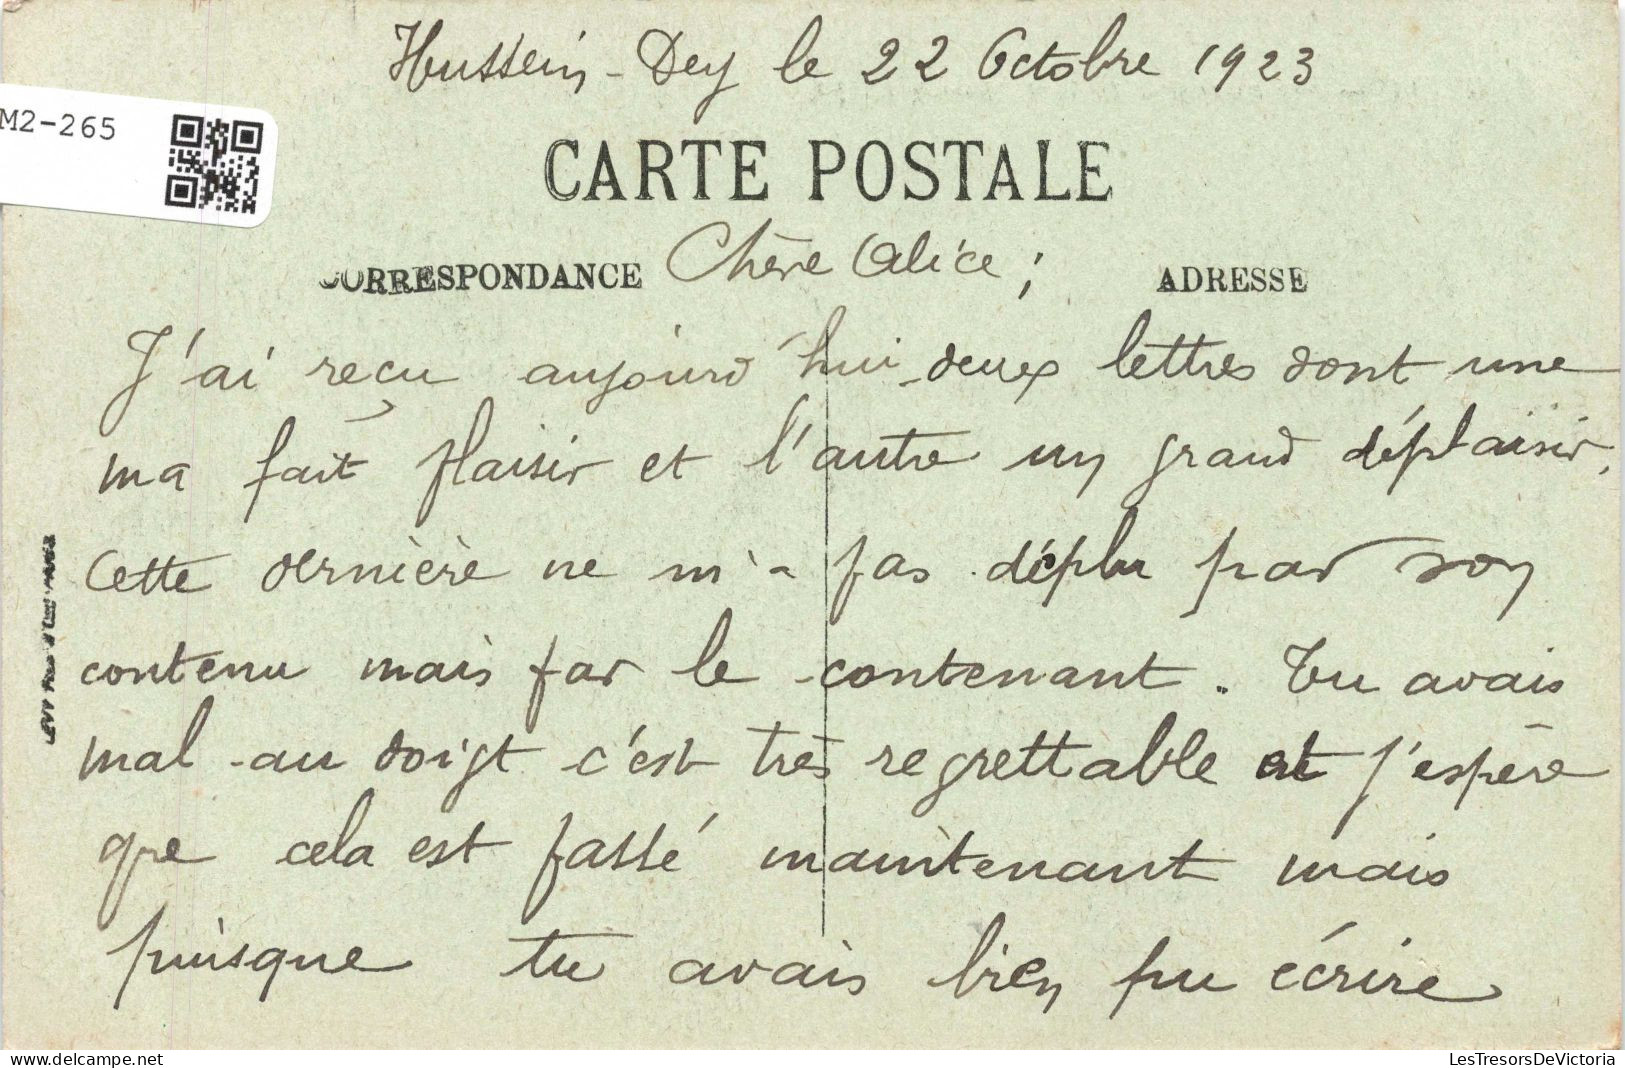 Hussein-Dey le 22 Octobre 1923
M2-265
CARTE POSTALE
CORRESPONDANCE
Chère Alice ;
ADRESSE
J'ai reçu aujourd'hui deux lettres dont une
ma fait plaisir et l'autre un grand déplaisir.
Cette dernière ne m'a pas déplu par son
contenu mais par le contenant. Tu avais
mal au doigt c'est très regrettable et j'espère
que cela est passé maintenant mais
puisque tu avais bien pu écrire
LesTresorsDeVictoria